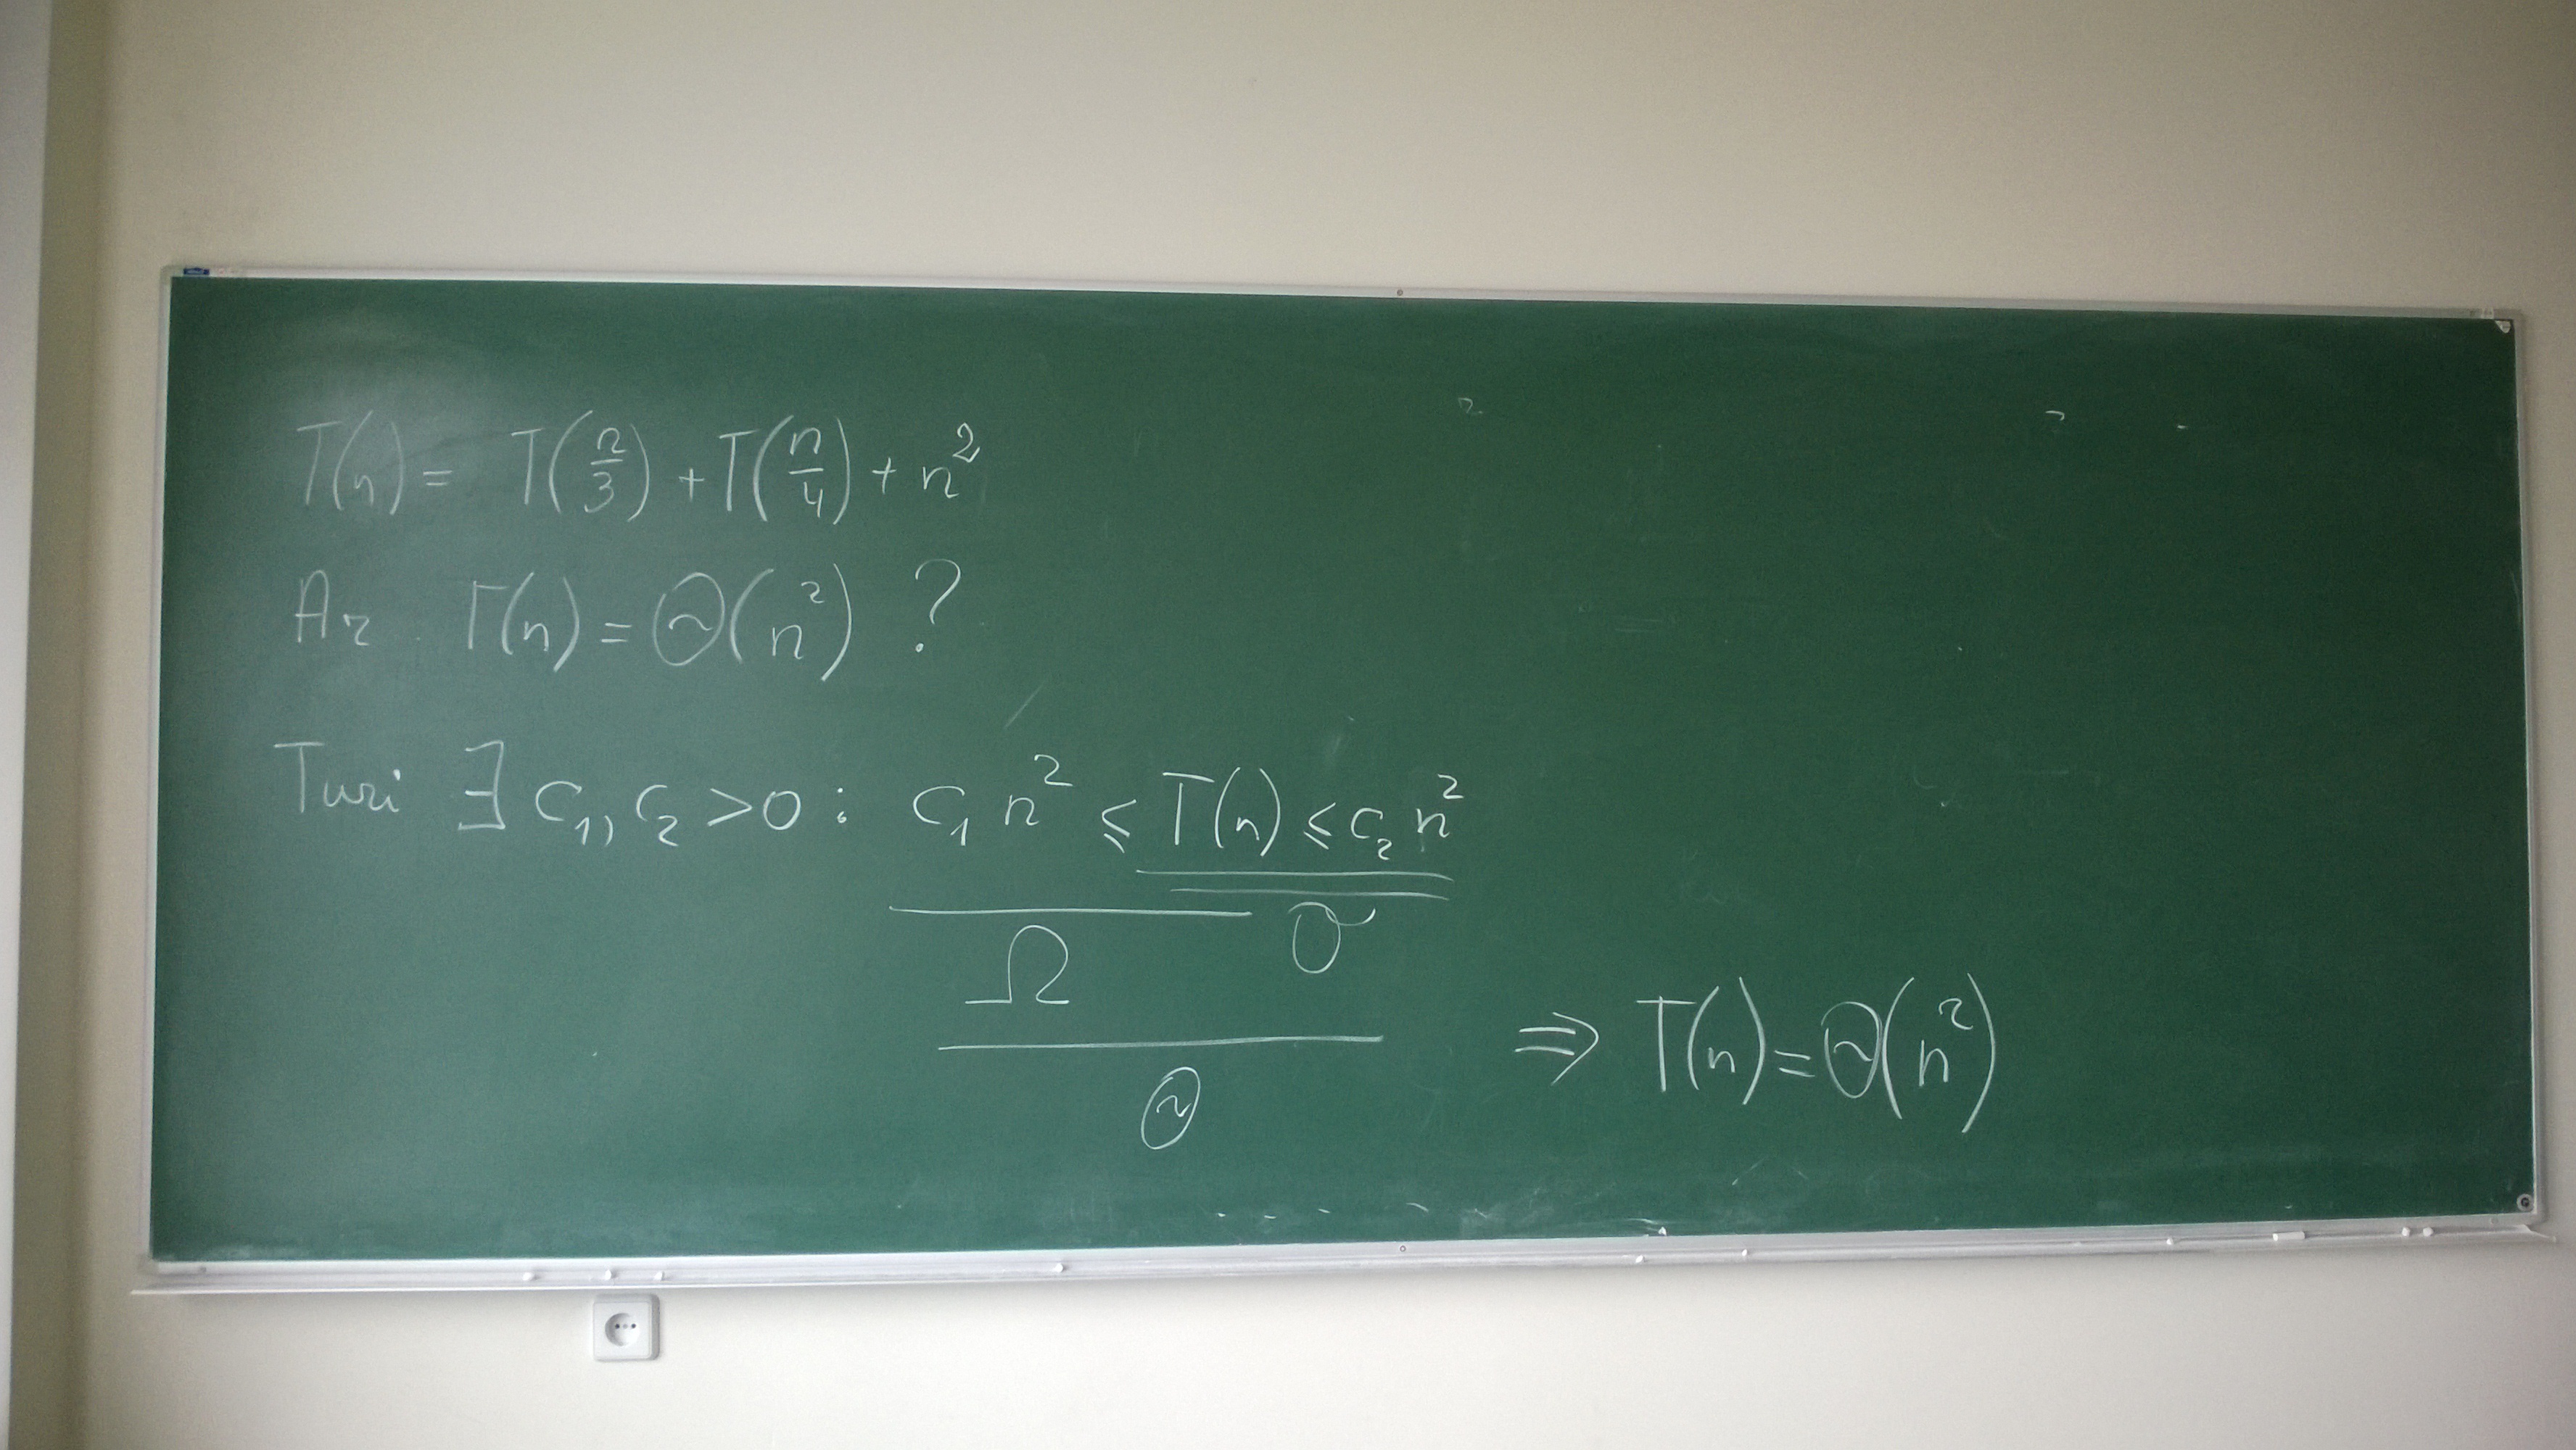 T(n) = T(n/3) + T(n/4) + n²
Ar T(n) = Θ(n²) ?
Turi ∃ c₁, c₂ > 0 : c₁ n² ≤ T(n) ≤ c₂ n²
Ω O
Θ ⇒ T(n) = Θ(n²)